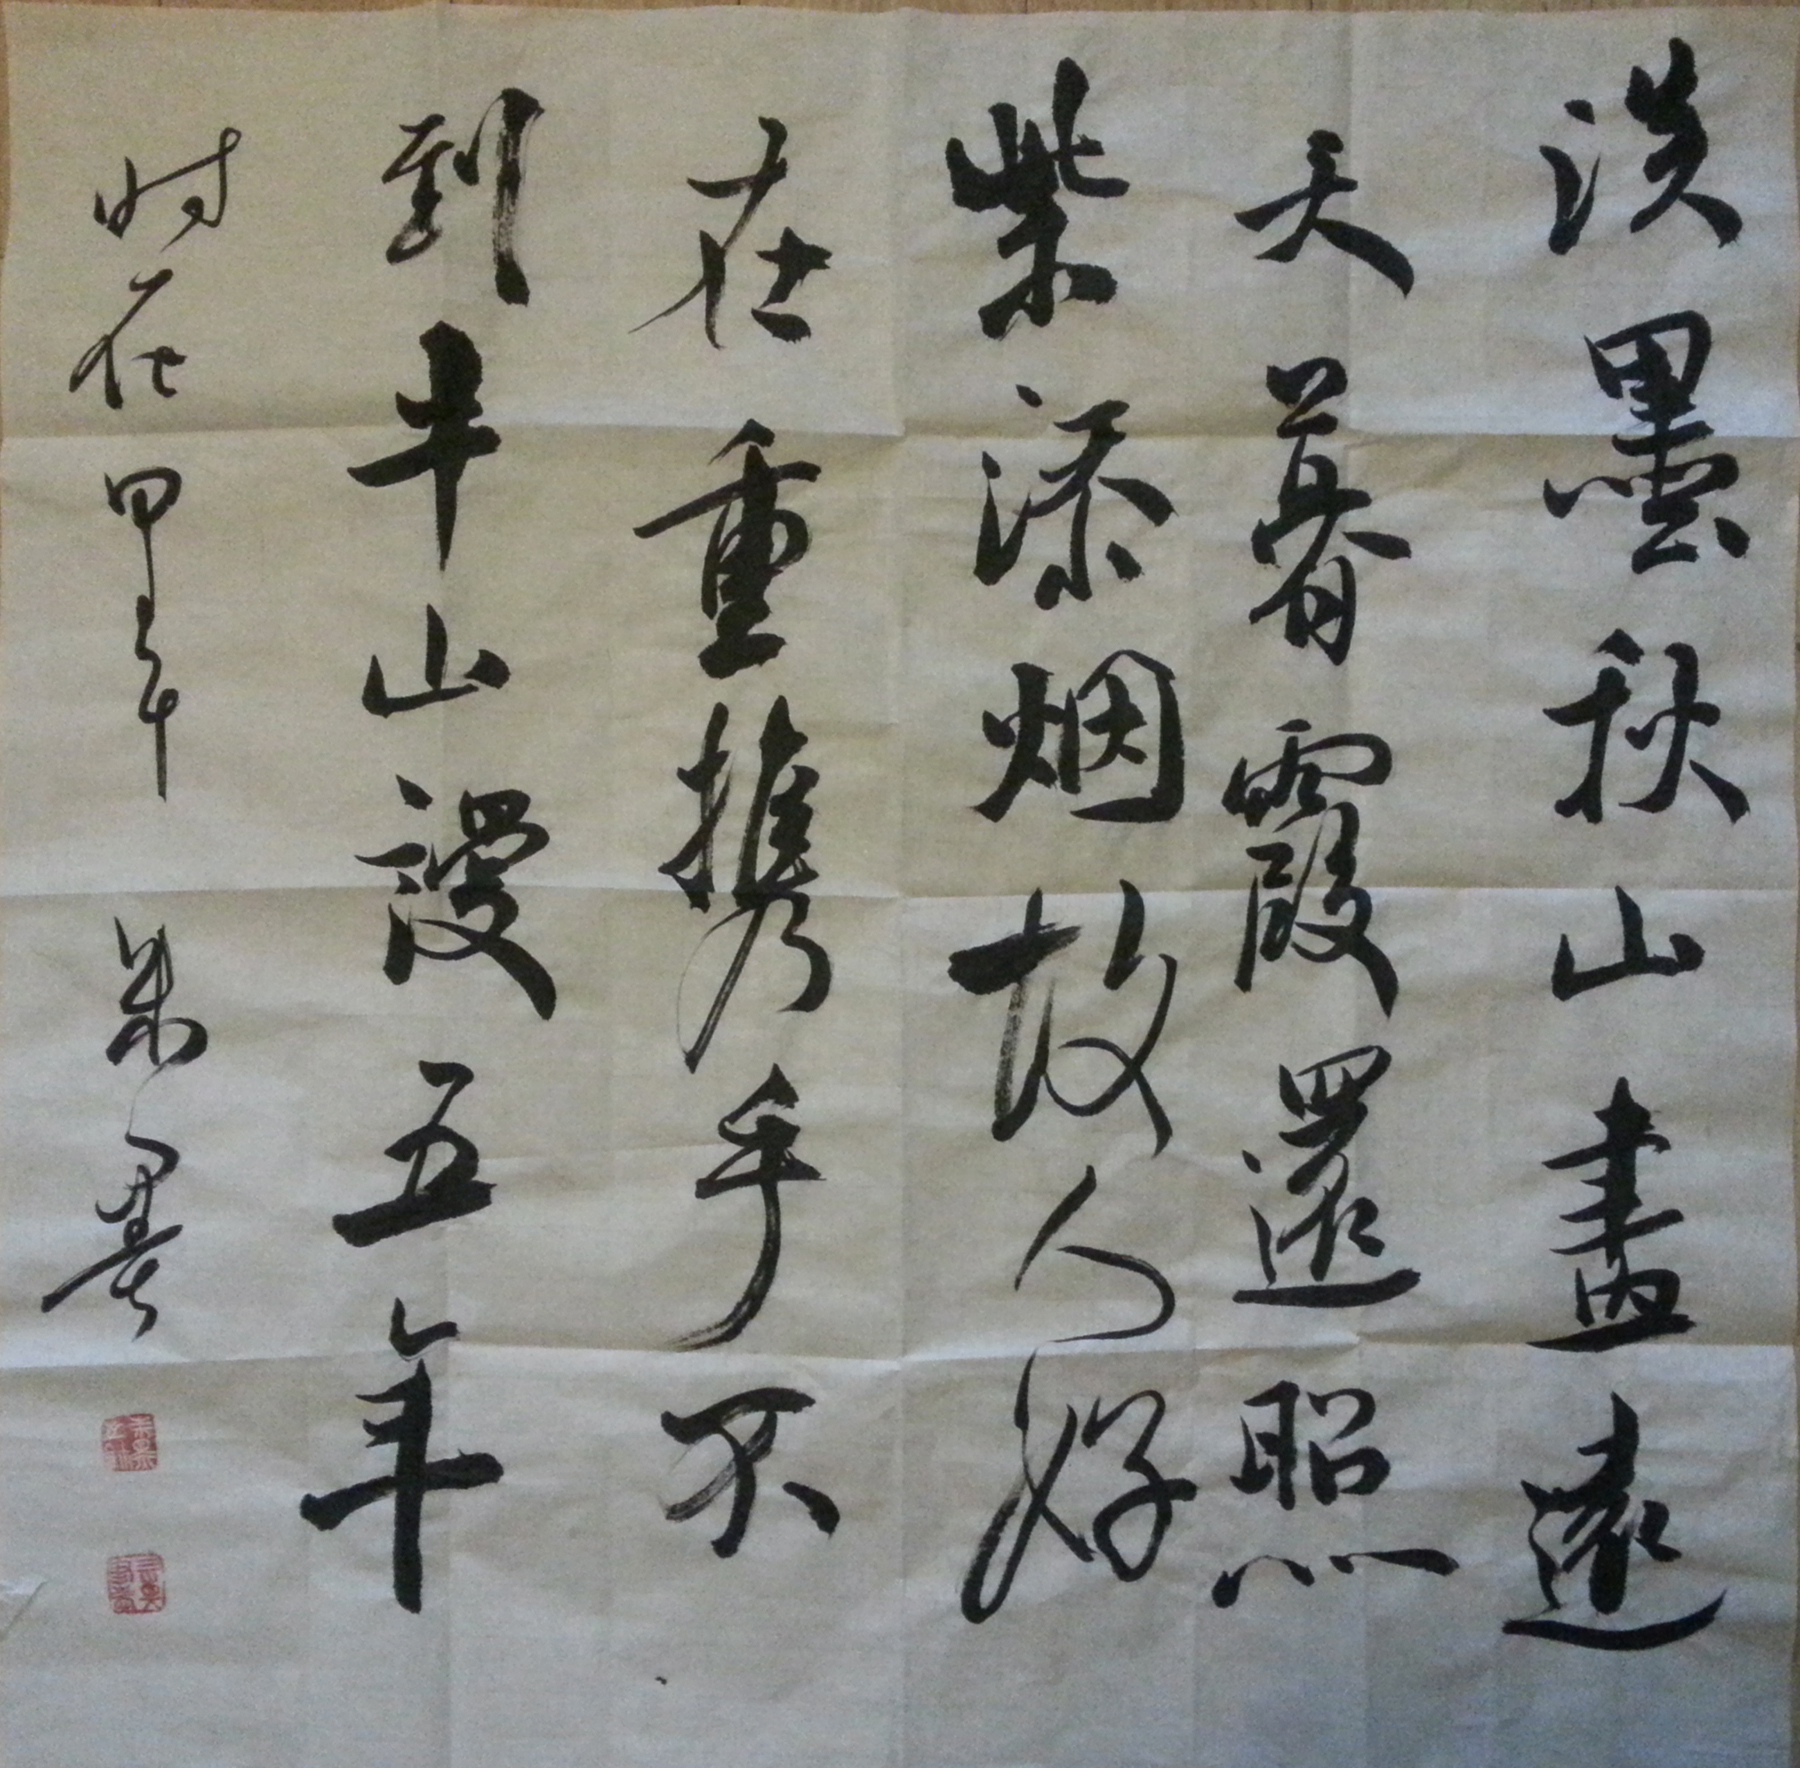 淡墨秋山盡遠
天暮霞還照
紫添烟故人好
在重携手不
到半山謾五年
时在甲午 朱墨